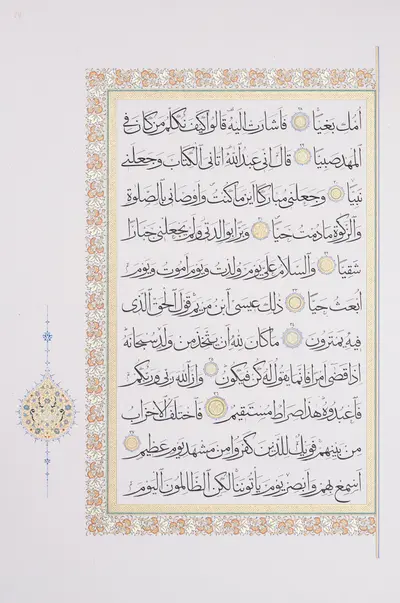 امك بغيا فاشارت اليه قالوا كيف نكلم من كان في
المهد صبيا قال اني عبد الله آتاني الكتاب وجعلني
نبيا وجعلني مباركا اين ما كنت واوصاني بالصلوة
والزكوة ما دمت حيا وبرا بوالدتي ولم يجعلني جبارا
شقيا والسلام علي يوم ولدت ويوم اموت ويوم
ابعث حيا ذلك عيسى ابن مريم قول الحق الذي
فيه يمترون ما كان لله ان يتخذ من ولد سبحانه
اذا قضى امرا فانما يقول له كن فيكون وان الله ربي وربكم
فاعبدوه هذا صراط مستقيم فاختلف الاحزاب
من بينهم فويل للذين كفروا من مشهد يوم عظيم
اسمع بهم وابصر يوم يأتوننا لكن الظالمون اليوم